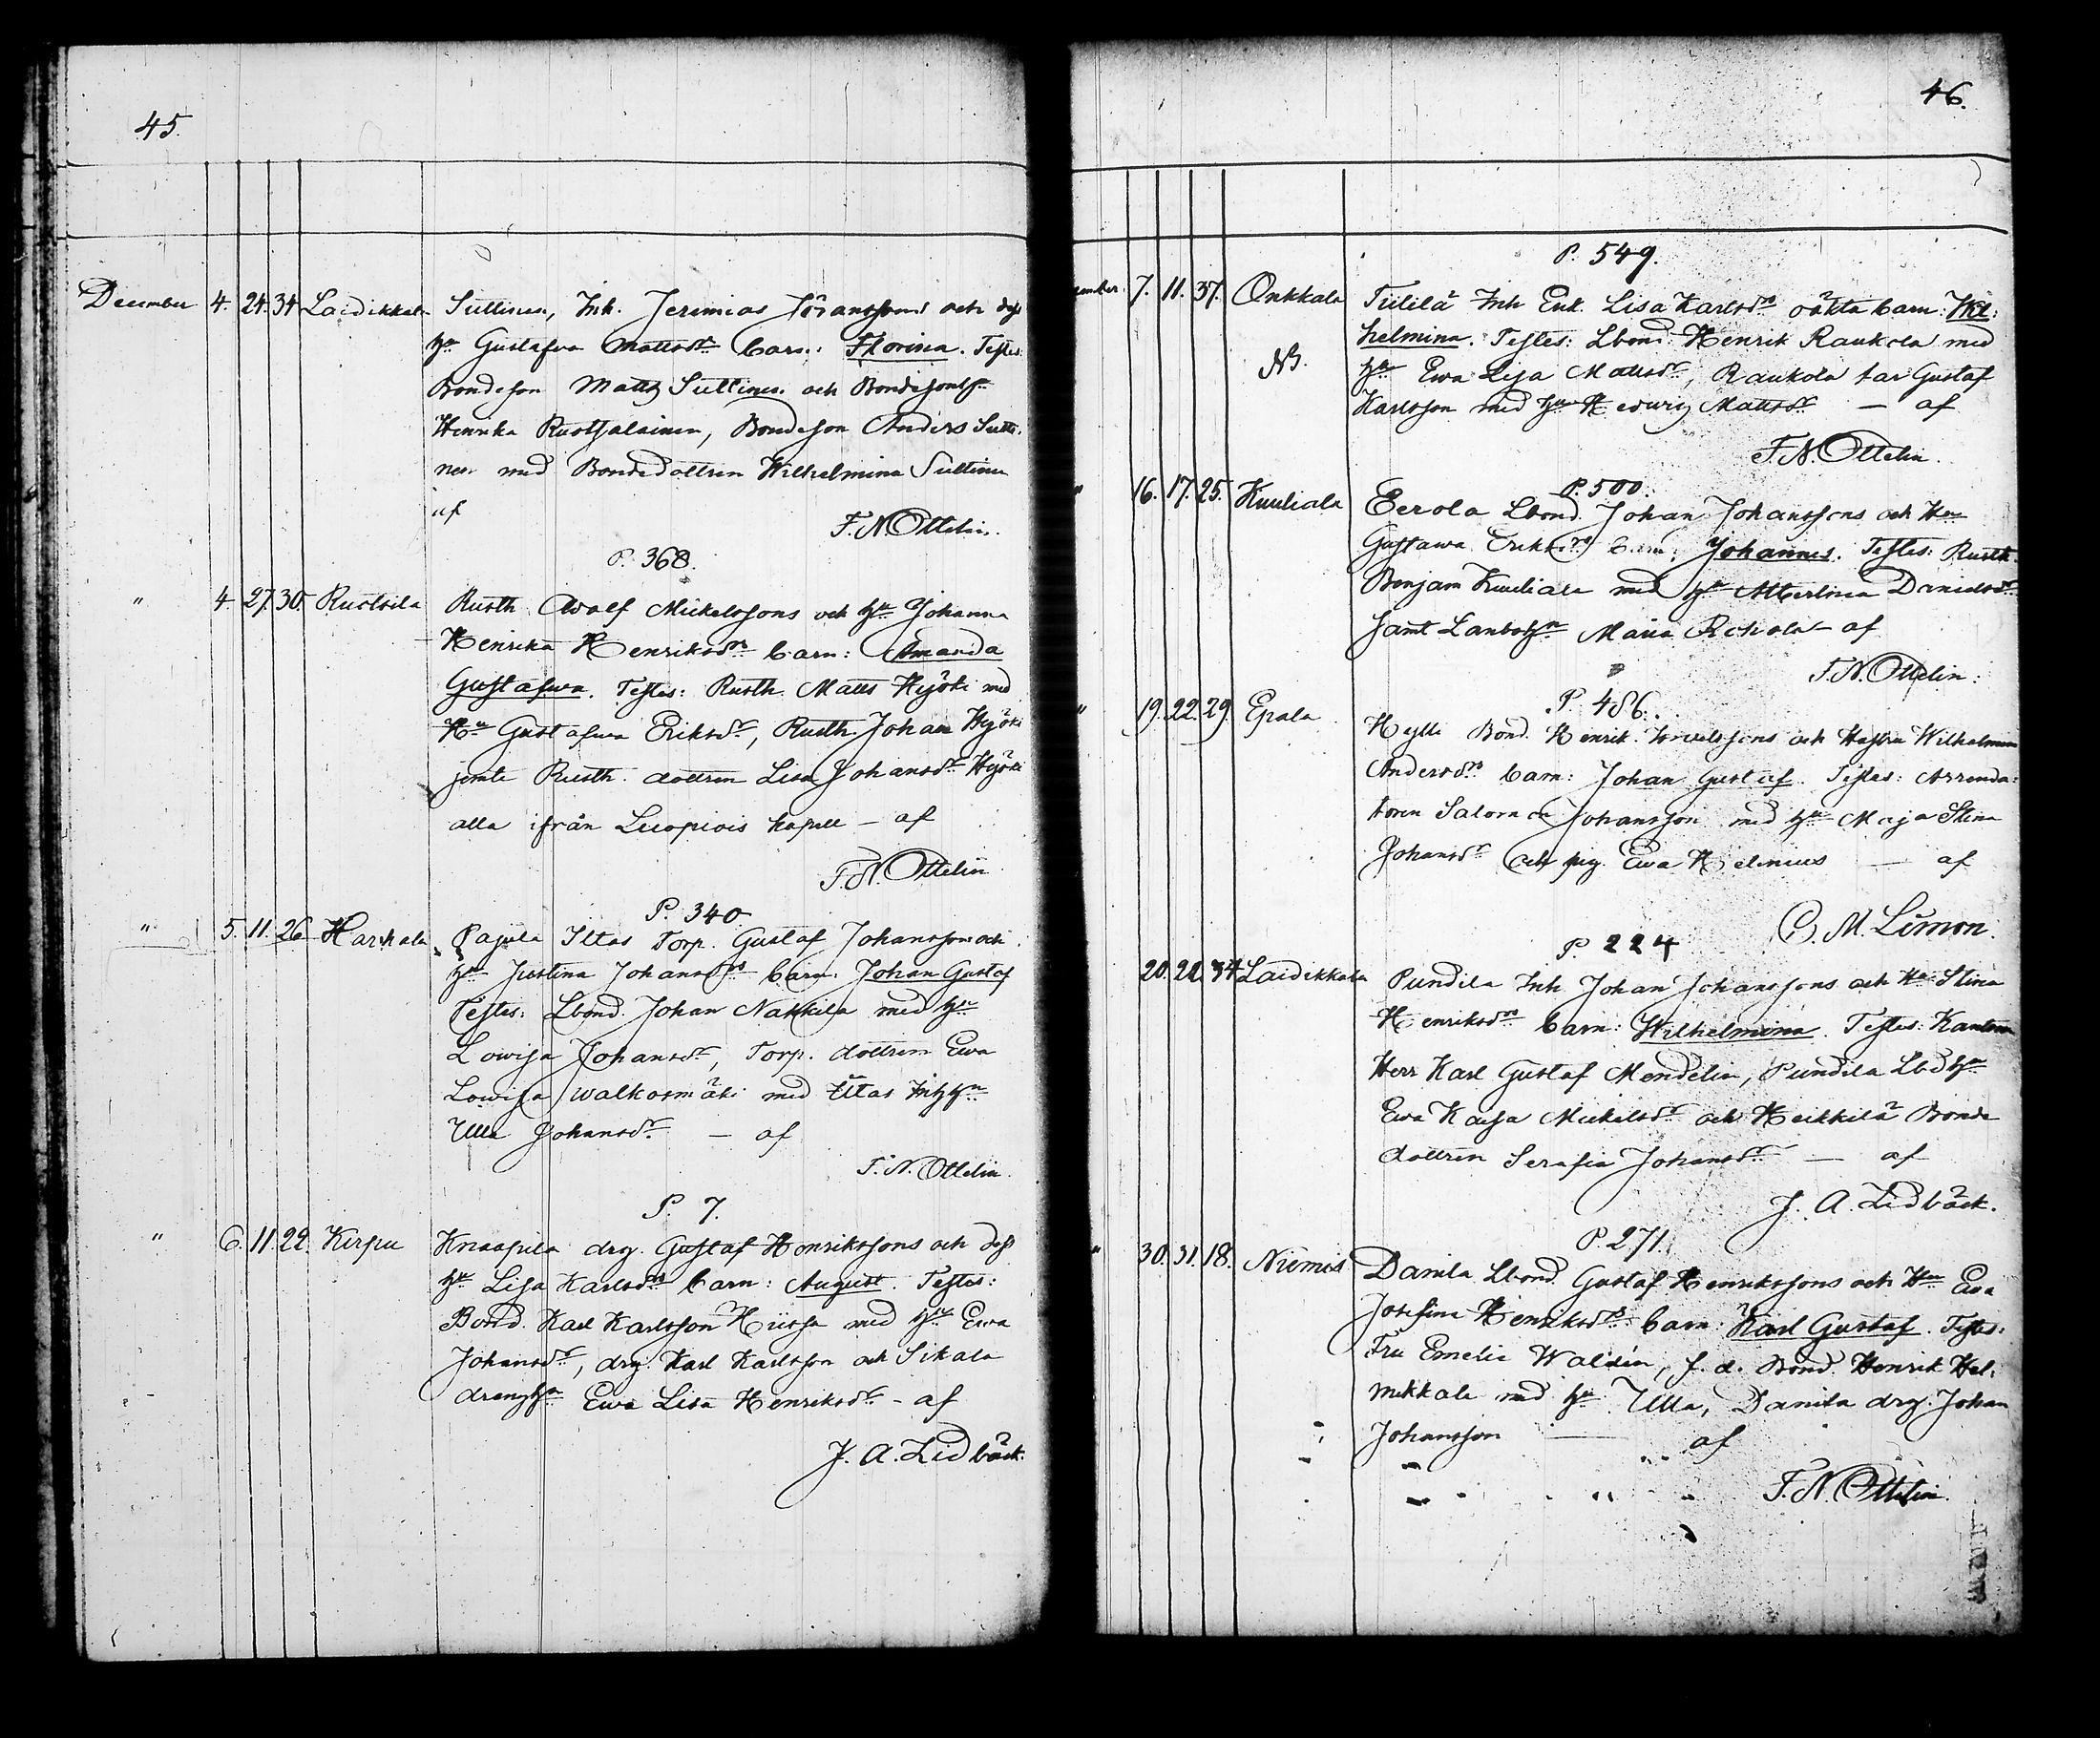 45.
December 4. 24. 34 Laidikkala Sullinen, Inh. Jeremias Göranssons och dess
hu Gustafwa Mattsdrs barn: Florina. Testes:
Bondeson Matts Sullinen och Bondesons
Henrika Rustsalainen, Bondeson Anders Sulli-
nen med Bondedottren Wilhelmina Sullinen
af
F. N. Ottelin.
P. 368.
" 4 27. 30. Rustsila Rusth. Adolf Mickelssons och hu Johanna
Henrika Henriksdrs barn: Amanda
Gustafwa. Testes: Rusth. Matts Hyöki med
Hu Gustafwa Eriksdr, Rusth. Johan Hyöki
jemte Rusth. dottren Lisa Johansdr Hyöki
alla ifrån Luopiois kapell – af
F. N. Ottelin
P. 340
" 5. 11. 26 Harkala Pajula Iltas Torp. Gustaf Johanssons och
hu Justina Johansdrs barn: Johan Gustaf
Testes: Lbond. Johan Nakkila med hu
Lowisa Johansdr, Torp. dottren Ewa
Lowisa Walkosmäki med Iltas Inhhu
Ulla Johansdr – af
F. N. Ottelin.
P. 7.
" 6. 11. 22. Kirpu Knaapila drg. Gustaf Henrikssons och dess
hu Lisa Karlsdrs barn: August. Testes:
Bond. Karl Karlsson Hiitsa med hu Ewa
Johansdr, drg. Karl Karlsson och Sikala
drenghu Ewa Lisa Henriksdr – af
J. A. Lidbäck.
46.
P. 549.
7. 11. 37. Onkkala Tülilä Inh Enk. Lisa Karlsdrs oäkta barn: Wil-
NB. helmina. Testes: Lbond. Henrik Raukola med
hu Ewa Lisa Mattsdr, Raukola Gustaf
Karlsson med hu Hedwig Mattsdr – af
F. N. Ottelin.
P. 500.
" 16. 17. 25. Kuuliala Eerola Lbond. Johan Johanssons och Hu
Gustawa Eriksdrs barn: Johannes. Testes: Rusth.
Benjam Kuuliala med hu Albertina Danielsdr
samt Lanbohu Maria Rehola – af
F. N. Ottelin.
P. 486.
" 19. 22. 29. Epala Hylli Bond. Henrik och Hustru Wilhelmina
Andersdrs barn: Johan Gustaf. Testes: Arrenda-
toren Salomon Johansson med hu Maja Stina
Johansdr och pig. Ewa Helenius – af
C. M. Limon.
P. 224
20. 22. 34 Laidikkala Pundila Inh. Johan Johanssons och Hu Stina
Henriksdrs barn: Wilhelmina. Testes: Kantorn
Herr Karl Gustaf Mendelin, Pundila Lbdhu
Ewa Kajsa Mickelsdr och Heikkilä Bonde
dottren Serafia Johansdr – af
J. A. Lidbäck.
P. 271.
" 30. 31. 18. Niemis Danila Lbond. Gustaf Henrikssons och Hu Ewa
Josefina Henriksdrs barn: Karl Gustaf. Testes:
Fru Emelie Waldén, f. d. Bond. Henrik Hel-
mikkala med hu Ulla, Danila drg. Johan
Johansson – af
F. N. Ottelin.